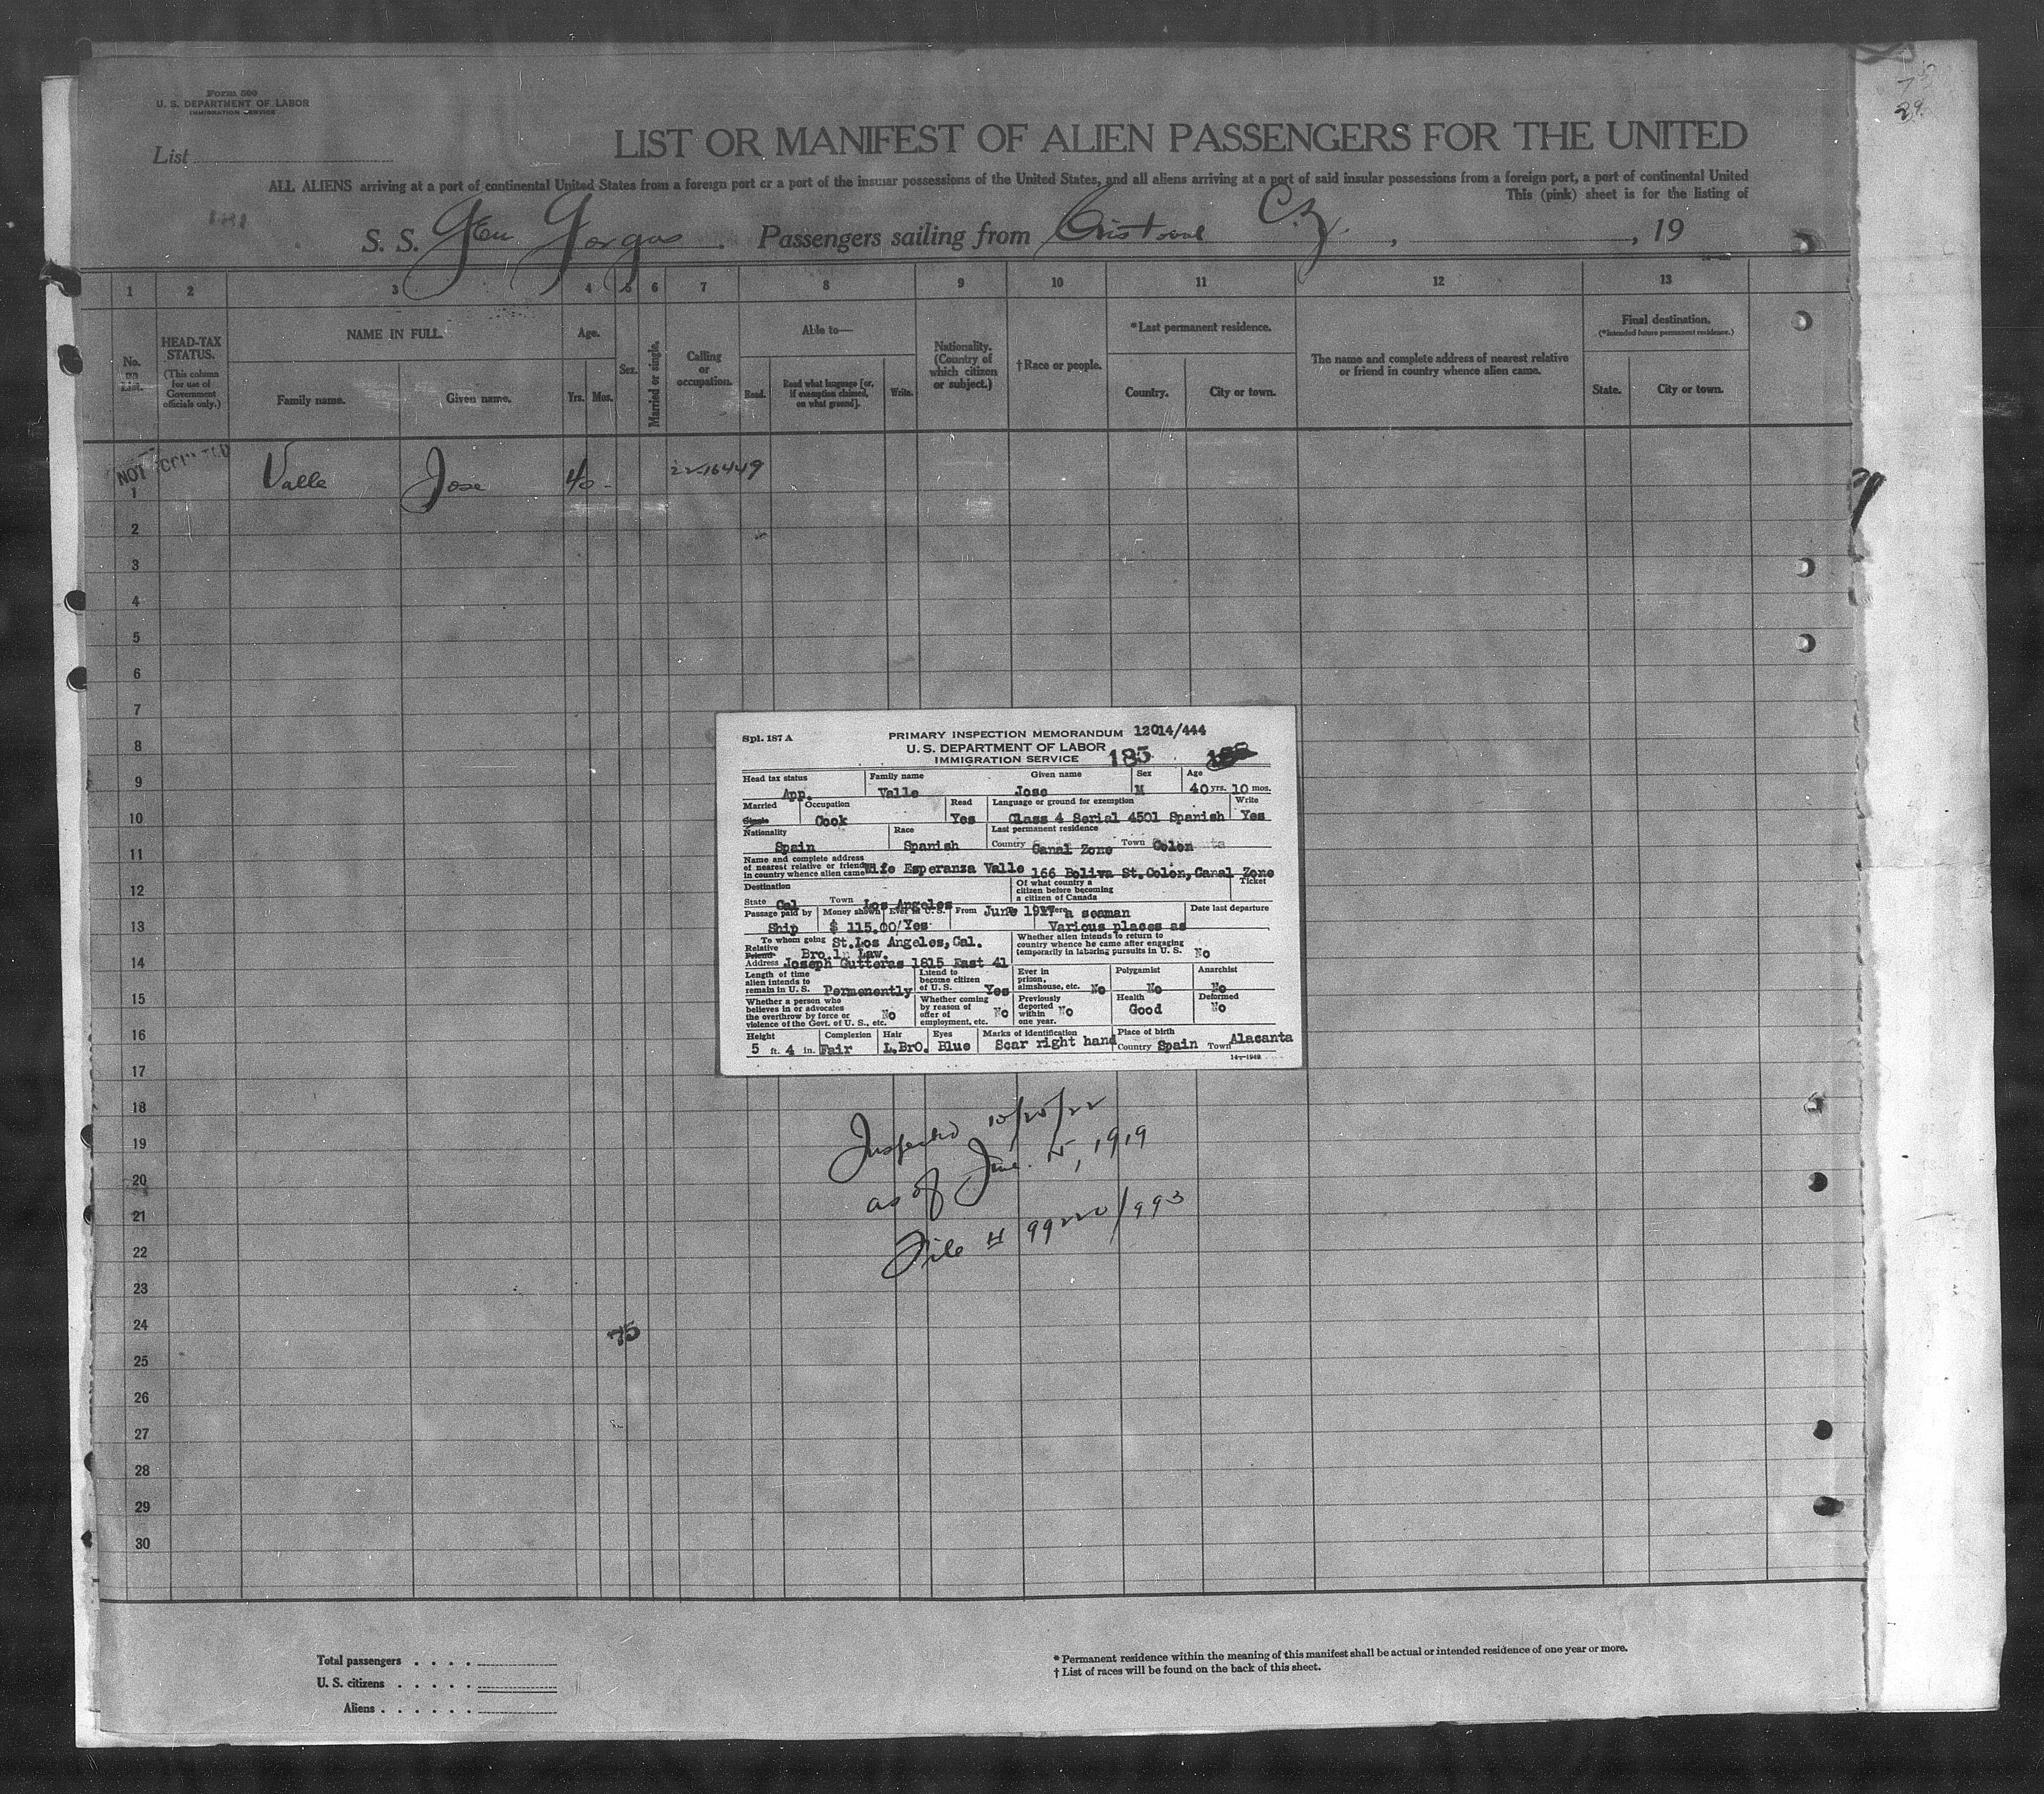 Form 500
U. S. DEPARTMENT OF LABOR
IMMIGRATION SERVICE
List
LIST OR MANIFEST OF ALIEN PASSENGERS FOR THE UNITED
ALL ALIENS arriving at a port of continental United States from a foreign port or a port of the insular possessions of the United States, and all aliens arriving at a port of said insular possessions from a foreign port, a port of continental United
This (pink) sheet is for the listing of
S. S. Gen Gorgas. Passengers sailing from Cristobal C.Z., , 19
1 2 3 4 5 6 7 8 9 10 11 12 13
No. on List.
HEAD-TAX STATUS.
(This column for use of Government officials only.)
NAME IN FULL.
Family name.
Given name.
Age.
Yrs. Mos.
Sex.
Married or single.
Calling or occupation.
Able to—
Read.
Read what language [or, if exemption claimed, on what ground].
Write.
Nationality. (Country of which citizen or subject.)
†Race or people.
*Last permanent residence.
Country.
City or town.
The name and complete address of nearest relative or friend in country whence alien came.
Final destination.
(*Intended future permanent residence.)
State.
City or town.
NOT
1 Valle Jose 40 - 22-16449
2
3
4
5
6
7
8
9
10
11
12
13
14
15
16
17
18
19
20
21
22
23
24
25
26
27
28
29
30
Spl. 187 A
PRIMARY INSPECTION MEMORANDUM 12014/444
U. S. DEPARTMENT OF LABOR
IMMIGRATION SERVICE 185
Head tax status Family name Given name Sex Age
App. Valle Jose M 40 yrs. 10 mos.
Married Occupation Read Language or ground for exemption Write
Single Cook Yes Class 4 Serial 4501 Spanish Yes
Nationality Race Last permanent residence
Spain Spanish Country Canal Zone Town Colon
Name and complete address
of nearest relative or friend
in country whence alien came Wife Esperanza Valle 166 Boliva St. Colon, Canal Zone
Destination Of what country a citizen before becoming a citizen of Canada Ticket
State Cal Town Los Angeles
Passage paid by Money shown Ever in U. S. From June 1917 a seaman Date last departure
Ship $ 115.00 Yes Various places as
To whom going St. Los Angeles, Cal. Whether alien intends to return to country whence he came after engaging temporarily in laboring pursuits in U. S. No
Relative
Friend Bro. in Law.
Address Joseph Gutteras 1815 East 41
Length of time alien intends to remain in U. S. Permenently Intend to become citizen of U. S. Yes Ever in prison, almshouse, etc. No Polygamist No Anarchist No
Whether a person who believes in or advocates the overthrow by force or violence of the Govt. of U. S., etc. No Whether coming by reason of offer of employment, etc. No Previously deported within one year. No Health Good Deformed No
Height Complexion Hair Eyes Marks of identification Place of birth
5 ft. 4 in. Fair L.BrO. Blue Scar right hand Country Spain Town Alacanta
14—1948
Inspected 10/20/22
as of June 15, 1919
File # 99220/993
75
Total passengers
U. S. citizens
Aliens
* Permanent residence within the meaning of this manifest shall be actual or intended residence of one year or more.
† List of races will be found on the back of this sheet.